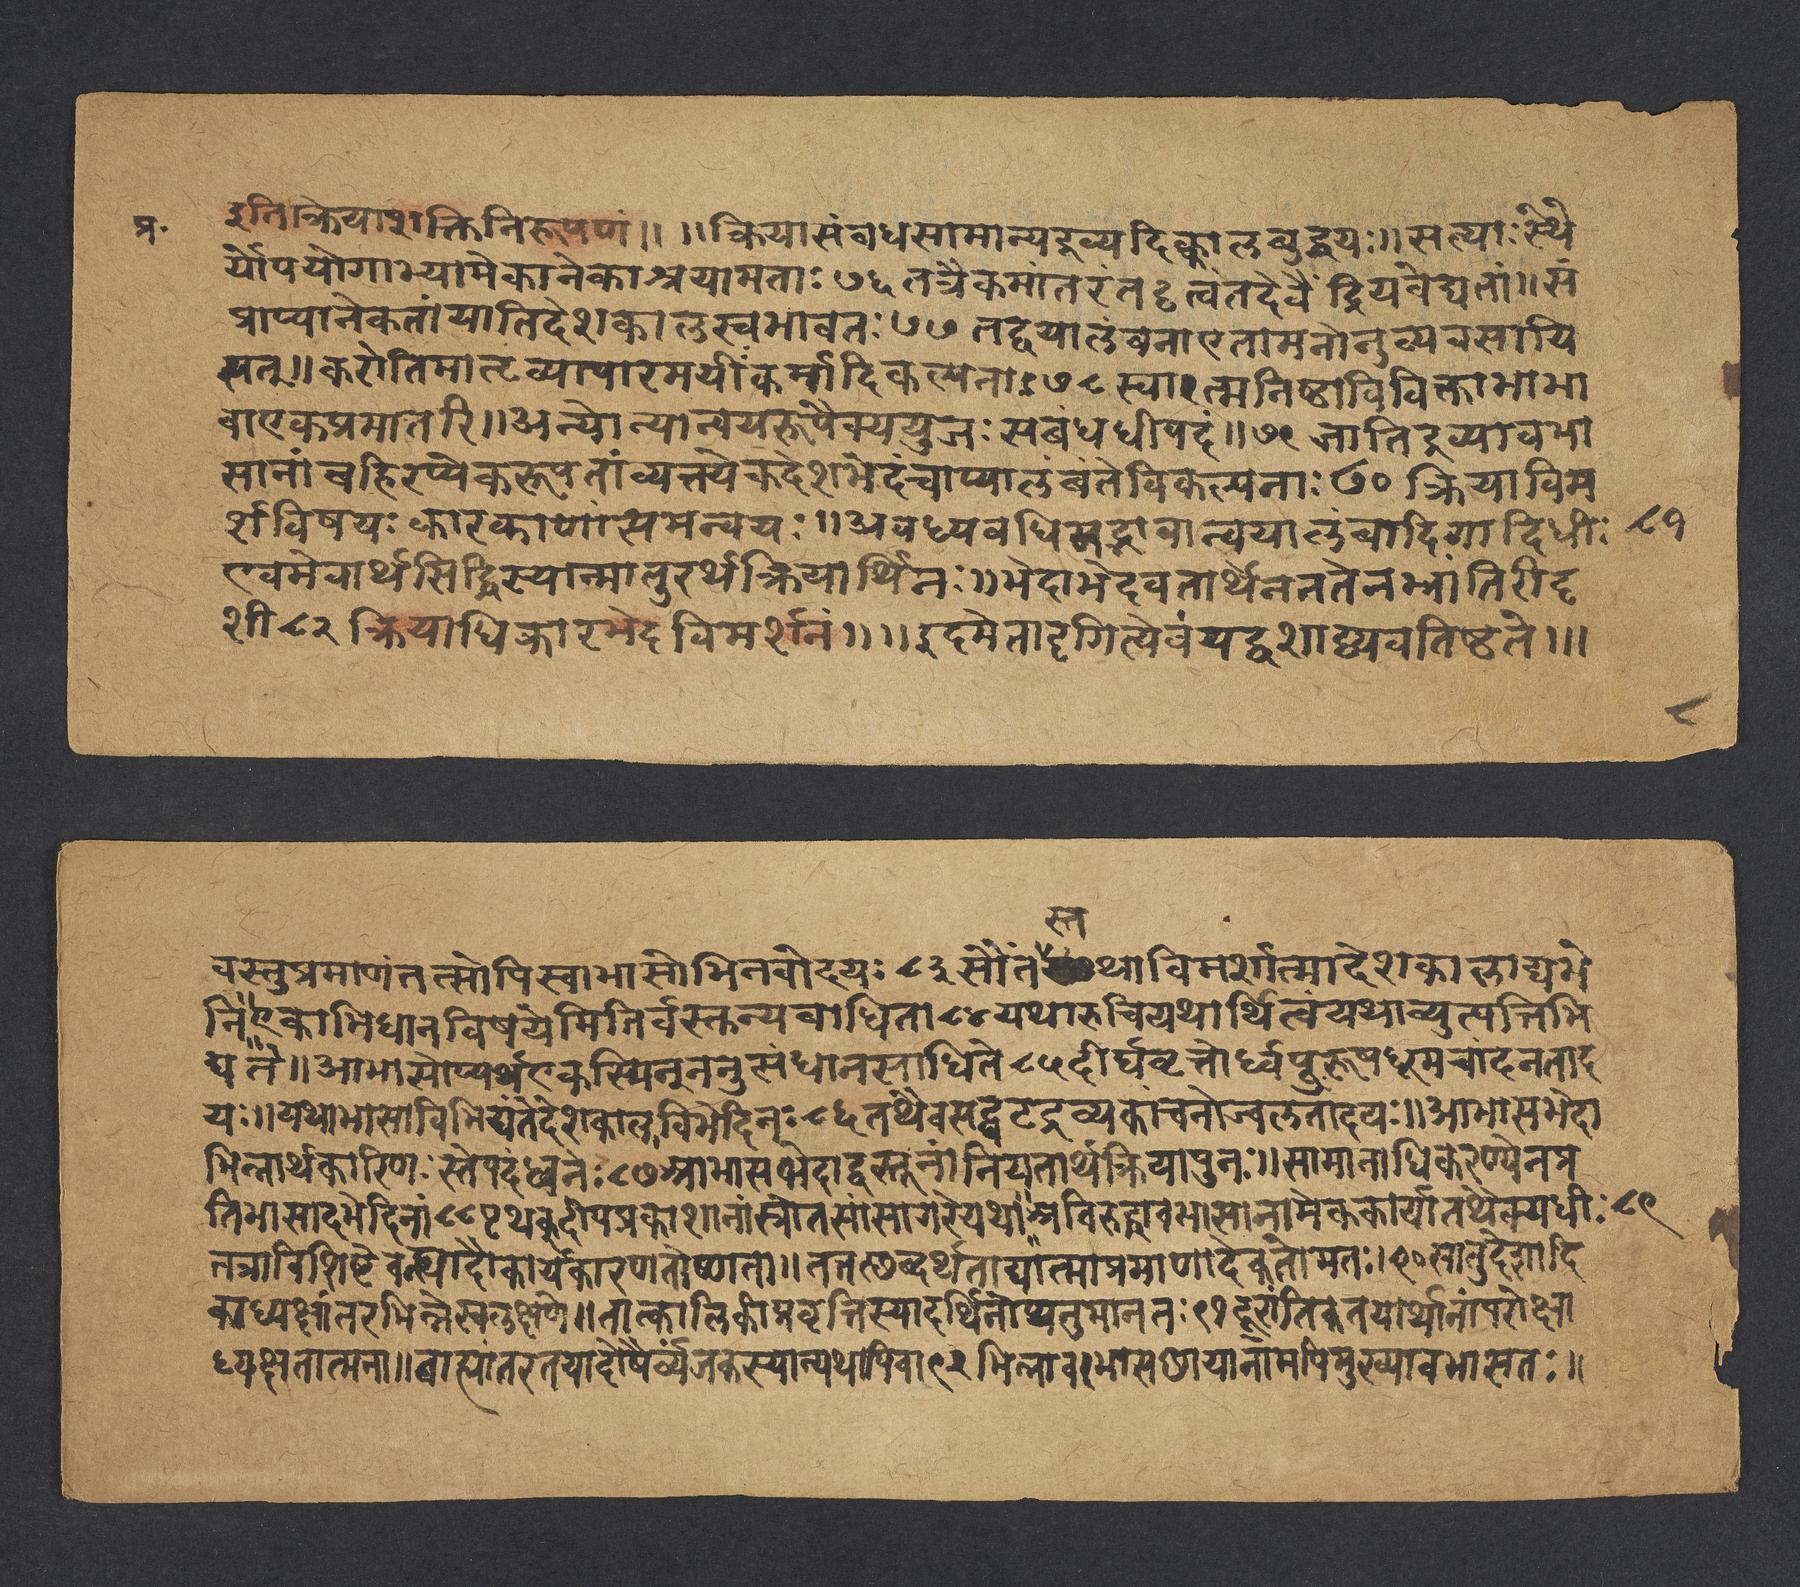 प्र॰
इतिक्रियाशक्तिनिरूपणं॥ ॥क्रियासंबधसामान्यद्रव्यदिक्कालबुद्धयः॥सत्याःस्थै
र्योपयोगाभ्यामेकानेकाश्रयामताः ७६ तत्रैकमांतरंतत्त्वंतदेवैंद्रियवेद्यतां॥सं
प्राप्यानेकतांयातिदेशकालस्वभावतः ७७ तद्द्वयालंबनाएतामनोनुव्यवसायि
सत्॥करोतिमातृव्यापारमयींकर्मादिकल्पनाः ७८ स्वात्मनिष्ठाविविक्ताभाभा
वाएकप्रमातरि॥अन्योन्यान्वयरूपैक्ययुजः सबंधधीपदं॥७९ जातिद्रव्यावभा
सानांबहिरप्येकरूपतांव्यत्त्येकदेशभेदंचाप्यालंबंतेविकल्पनाः ८० क्रियाविम
र्शविषयः कारकाणांसमन्वयः॥अवध्यवधिमद्भावान्वयालंबादिगादिधीः ८१
एवमेवार्थसिद्धिस्यान्मातुरर्थक्रियार्थिनः॥भेदाभेदवतार्थेनततेनभ्रांतिरीदृ
शी ८२ क्रियाधिकारभेदविमर्शनं॥ ॥इदमेतादृगित्येवंयद्वशाद्व्यवतिष्ठते॥
८
स्त
वस्तुप्रमाणंतत्सोपिस्वाभासोभिनवोदयः ८३ सोंतथाविमर्शात्मादेशकालाद्यभे
निएकाभिधानविषयेमितिर्वस्तन्यबाधिता ८४ यथारुचियथार्थित्वंयथाव्युत्पत्तिभि
द्यते॥आभासोप्यर्थएकस्मिन्ननुसंधानसाधिते ८५ दीर्घवृत्तोर्ध्वपुरूषधूमचांदनताद
यः॥यथाभासाविभिद्यंतेदेशकालविभेदिनः ८६ तथैवसद्घटद्रव्यकांचनोज्वलतादयः॥आभासभेदा
भिन्नार्थकारिणःस्तेपदंध्वनेः ८७ आभासभेदाद्वस्तूनांनियतार्थक्रियापुनः॥सामानाधिकरण्येनप्र
तिभासादभेदिनां ८८ पृथक्दीपप्रकाशानांस्त्रोतसांसागरेयथा॥अविरुद्धावभासानामेककार्यातथैक्यधीः ८९
तत्राविशिष्टेवह्न्यादौकार्यकारणतोष्णता॥तत्तछब्दर्थताद्यात्माप्रमाणादेकतोमतः॥९० सातुदेशादि
काध्यक्षांतरभिन्नेस्वलक्षणे॥तात्कालिकीप्रवृत्तिस्यादर्थिनोप्यनुमानतः ९१ दूरांतिकतयोर्थानांपरोक्षा
ध्यक्षतात्मना॥बाह्यांतरतयादोषैर्व्यंजकस्यान्यथापिवा ९२ भिन्नावभासछायानामपिमुख्यावभासतः॥